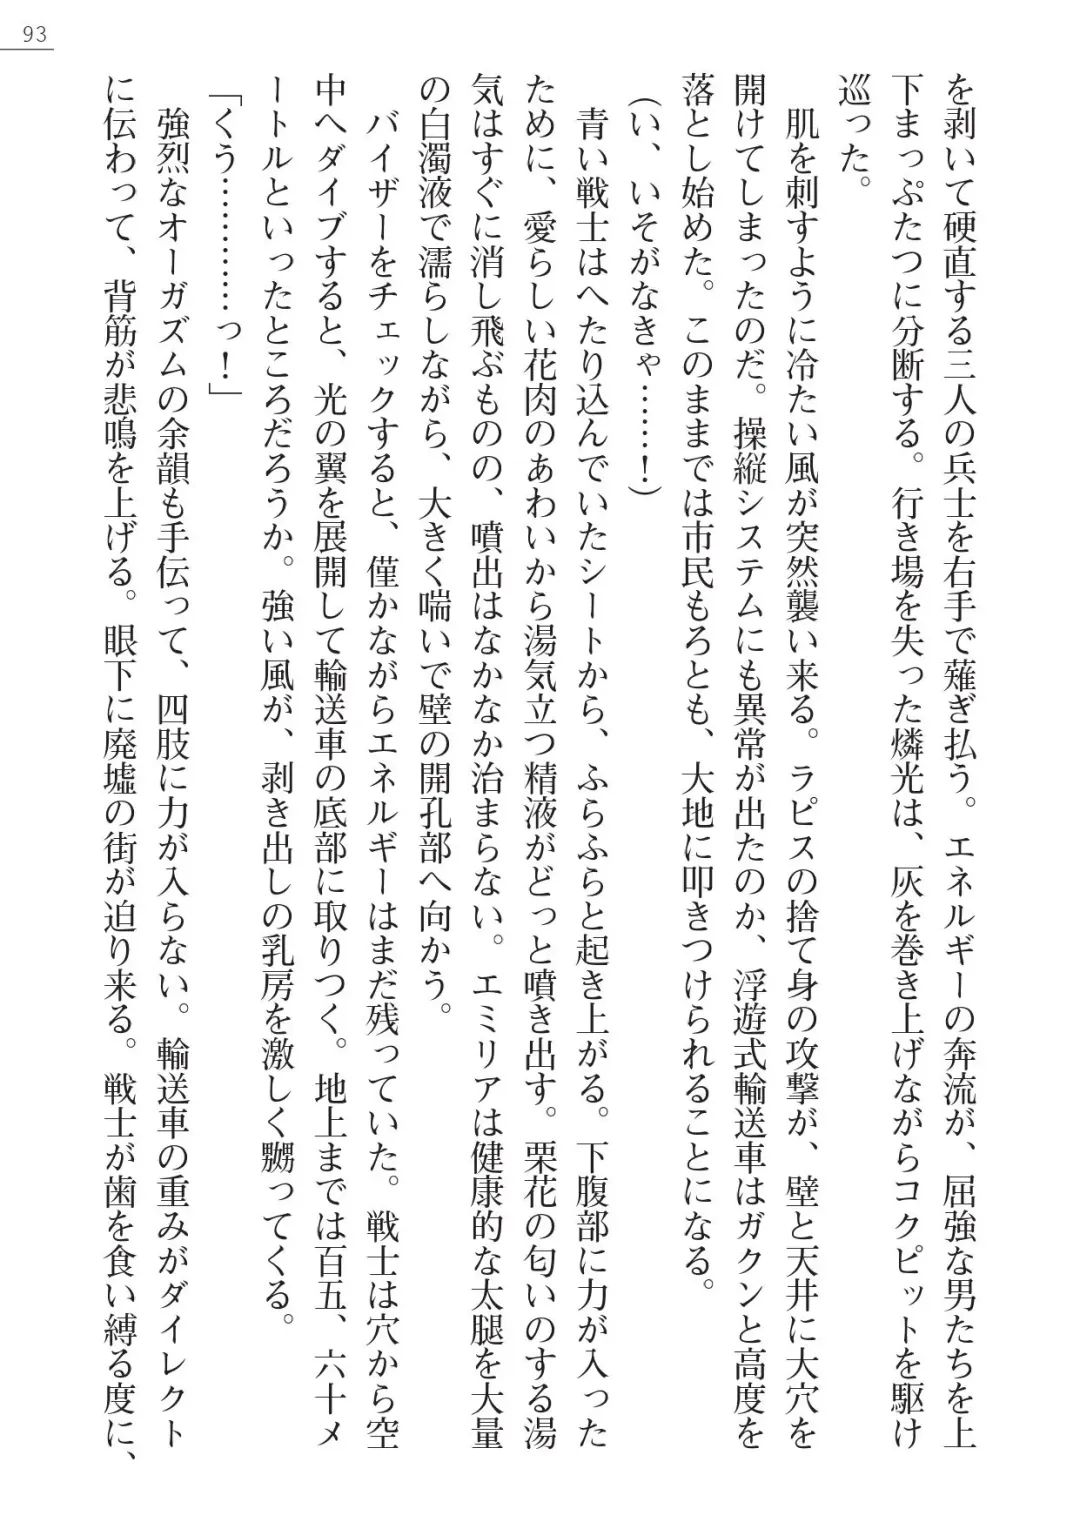 93
を剥いて硬直する三人の兵士を右手で薙ぎ払う。エネルギーの奔流が、屈強な男たちを上
下まっぷたつに分断する。行き場を失った燐光は、灰を巻き上げながらコクピットを駆け
巡った。
肌を刺すように冷たい風が突然襲い来る。ラピスの捨て身の攻撃が、壁と天井に大穴を
開けてしまったのだ。操縦システムにも異常が出たのか、浮遊式輸送車はガクンと高度を
落とし始めた。このままでは市民もろとも、大地に叩きつけられることになる。
(い、いそがなきゃ……！)
青い戦士はへたり込んでいたシートから、ふらふらと起き上がる。下腹部に力が入った
ために、愛らしい花肉のあわいから湯気立つ精液がどっと噴き出す。栗花の匂いのする湯
気はすぐに消し飛ぶものの、噴出はなかなか治まらない。エミリアは健康的な太腿を大量
の白濁液で濡らしながら、大きく喘いで壁の開孔部へ向かう。
バイザーをチェックすると、僅かながらエネルギーはまだ残っていた。戦士は穴から空
中へダイブすると、光の翼を展開して輸送車の底部に取りつく。地上までは百五、六十メ
ートルといったところだろうか。強い風が、剥き出しの乳房を激しく嬲ってくる。
「くう…………っ！」
強烈なオーガズムの余韻も手伝って、四肢に力が入らない。輸送車の重みがダイレクト
に伝わって、背筋が悲鳴を上げる。眼下に廃墟の街が迫り来る。戦士が歯を食い縛る度に、